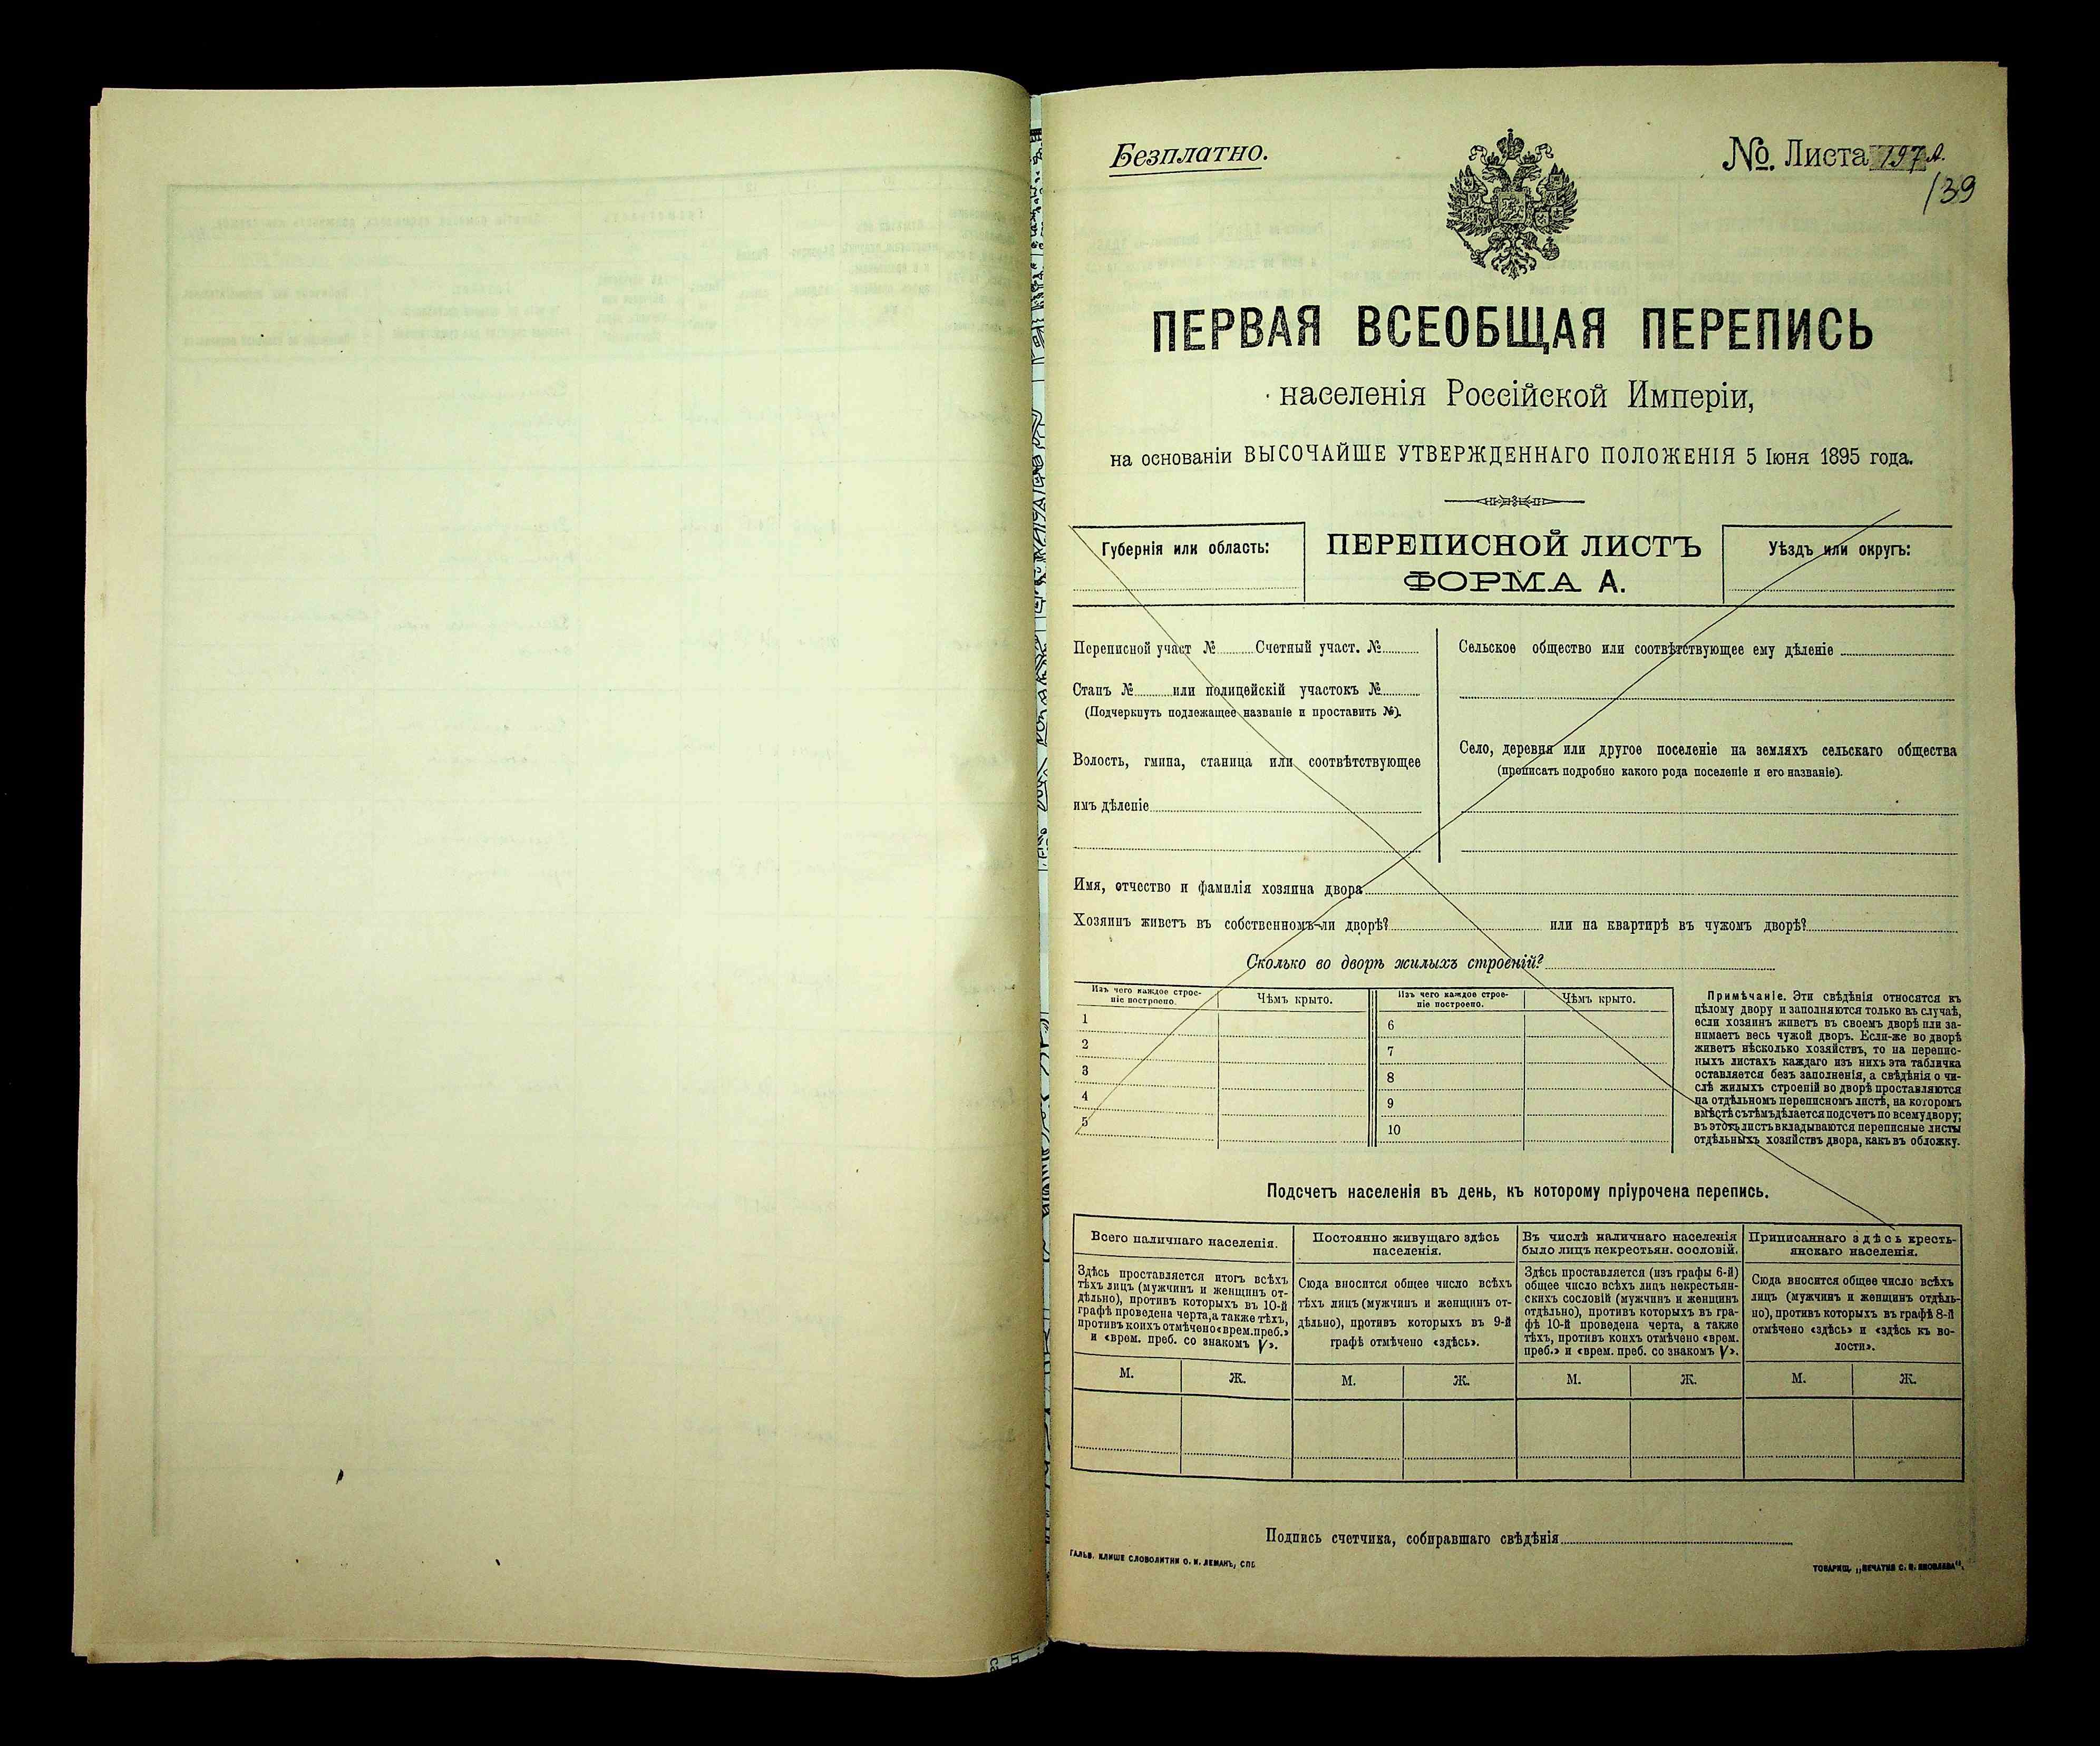 Безплатно.
№. Листа 197 А.
139
ПЕРВАЯ ВСЕОБЩАЯ ПЕРЕПИСЬ
населенія Россійской Имперіи,
на основаніи ВЫСОЧАЙШЕ УТВЕРЖДЕННАГО ПОЛОЖЕНІЯ 5 Іюня 1895 года.
Губернія или область:
ПЕРЕПИСНОЙ ЛИСТЪ
ФОРМА А.
Уѣздъ или округъ:
Переписной участ № Счетный участ. №
Станъ № или полицейскій участокъ №
(Подчеркнуть подлежащее названіе и проставить №).
Волость, гмина, станица или соотвѣтствующее
имъ дѣленіе
Сельское общество или соотвѣтствующее ему дѣленіе
Село, деревня или другое поселеніе на земляхъ сельскаго общества
(прописать подробно какого рода поселеніе и его названіе).
Имя, отчество и фамилія хозяина двора
Хозяинъ живетъ въ собственномъ-ли дворѣ? или на квартирѣ въ чужомъ дворѣ?
Сколько во дворѣ жилыхъ строеній?
Изъ чего каждое строе-
ніе построено.
Чѣмъ крыто.
1
2
3
4
5
Изъ чего каждое строе-
ніе построено.
Чѣмъ крыто.
6
7
8
9
10
Примѣчаніе. Эти свѣдѣнія относятся къ
цѣлому двору и заполняются только въ случаѣ,
если хозяинъ живетъ въ своемъ дворѣ или за-
нимаетъ весь чужой дворъ. Если-же во дворѣ
живетъ нѣсколько хозяйствъ, то на перепис-
ныхъ листахъ каждаго изъ нихъ эта табличка
оставляется безъ заполненія, а свѣдѣнія о чи-
слѣ жилыхъ строеній во дворѣ проставляются
на отдѣльномъ переписномъ листѣ, на которомъ
вмѣстѣ съ тѣмъ дѣлается подсчетъ по всему двору;
въ этотъ листъ вкладываются переписные листы
отдѣльныхъ хозяйствъ двора, какъ въ обложку.
Подсчетъ населенія въ день, къ которому пріурочена перепись.
Всего наличнаго населенія.
Здѣсь проставляется итогъ всѣхъ
тѣхъ лицъ (мужчинъ и женщинъ от-
дѣльно), противъ которыхъ въ 10-й
графѣ проведена черта, а также тѣхъ,
противъ коихъ отмѣчено «врем. преб.»
и «врем. преб. со знакомъ V».
М. Ж.
Постоянно живущаго здѣсь
населенія.
Сюда вносится общее число всѣхъ
тѣхъ лицъ (мужчинъ и женщинъ от-
дѣльно), противъ которыхъ въ 9-й
графѣ отмѣчено «здѣсь».
М. Ж.
Въ числѣ наличнаго населенія
было лицъ некрестьян. сословій.
Здѣсь проставляется (изъ графы 6-й)
общее число всѣхъ лицъ некрестьян-
скихъ сословій (мужчинъ и женщинъ
отдѣльно), противъ которыхъ въ гра-
фѣ 10-й проведена черта, а также
тѣхъ, противъ коихъ отмѣчено «врем.
преб.» и «врем. преб. со знакомъ V».
М. Ж.
Приписаннаго здѣсь кресть-
янскаго населенія.
Сюда вносится общее число всѣхъ
лицъ (мужчинъ и женщинъ отдѣль-
но), противъ которыхъ въ графѣ 8-й
отмѣчено «здѣсь» и «здѣсь къ во-
лости».
М. Ж.
Подпись счетчика, собиравшаго свѣдѣнія
ГАЛЬВ. КЛИШЕ СЛОВОЛИТНИ О. И. ЛЕМАНЪ, СПБ
ТОВАРИЩ. „ПЕЧАТНЯ С. П. ЯКОВЛЕВА“.